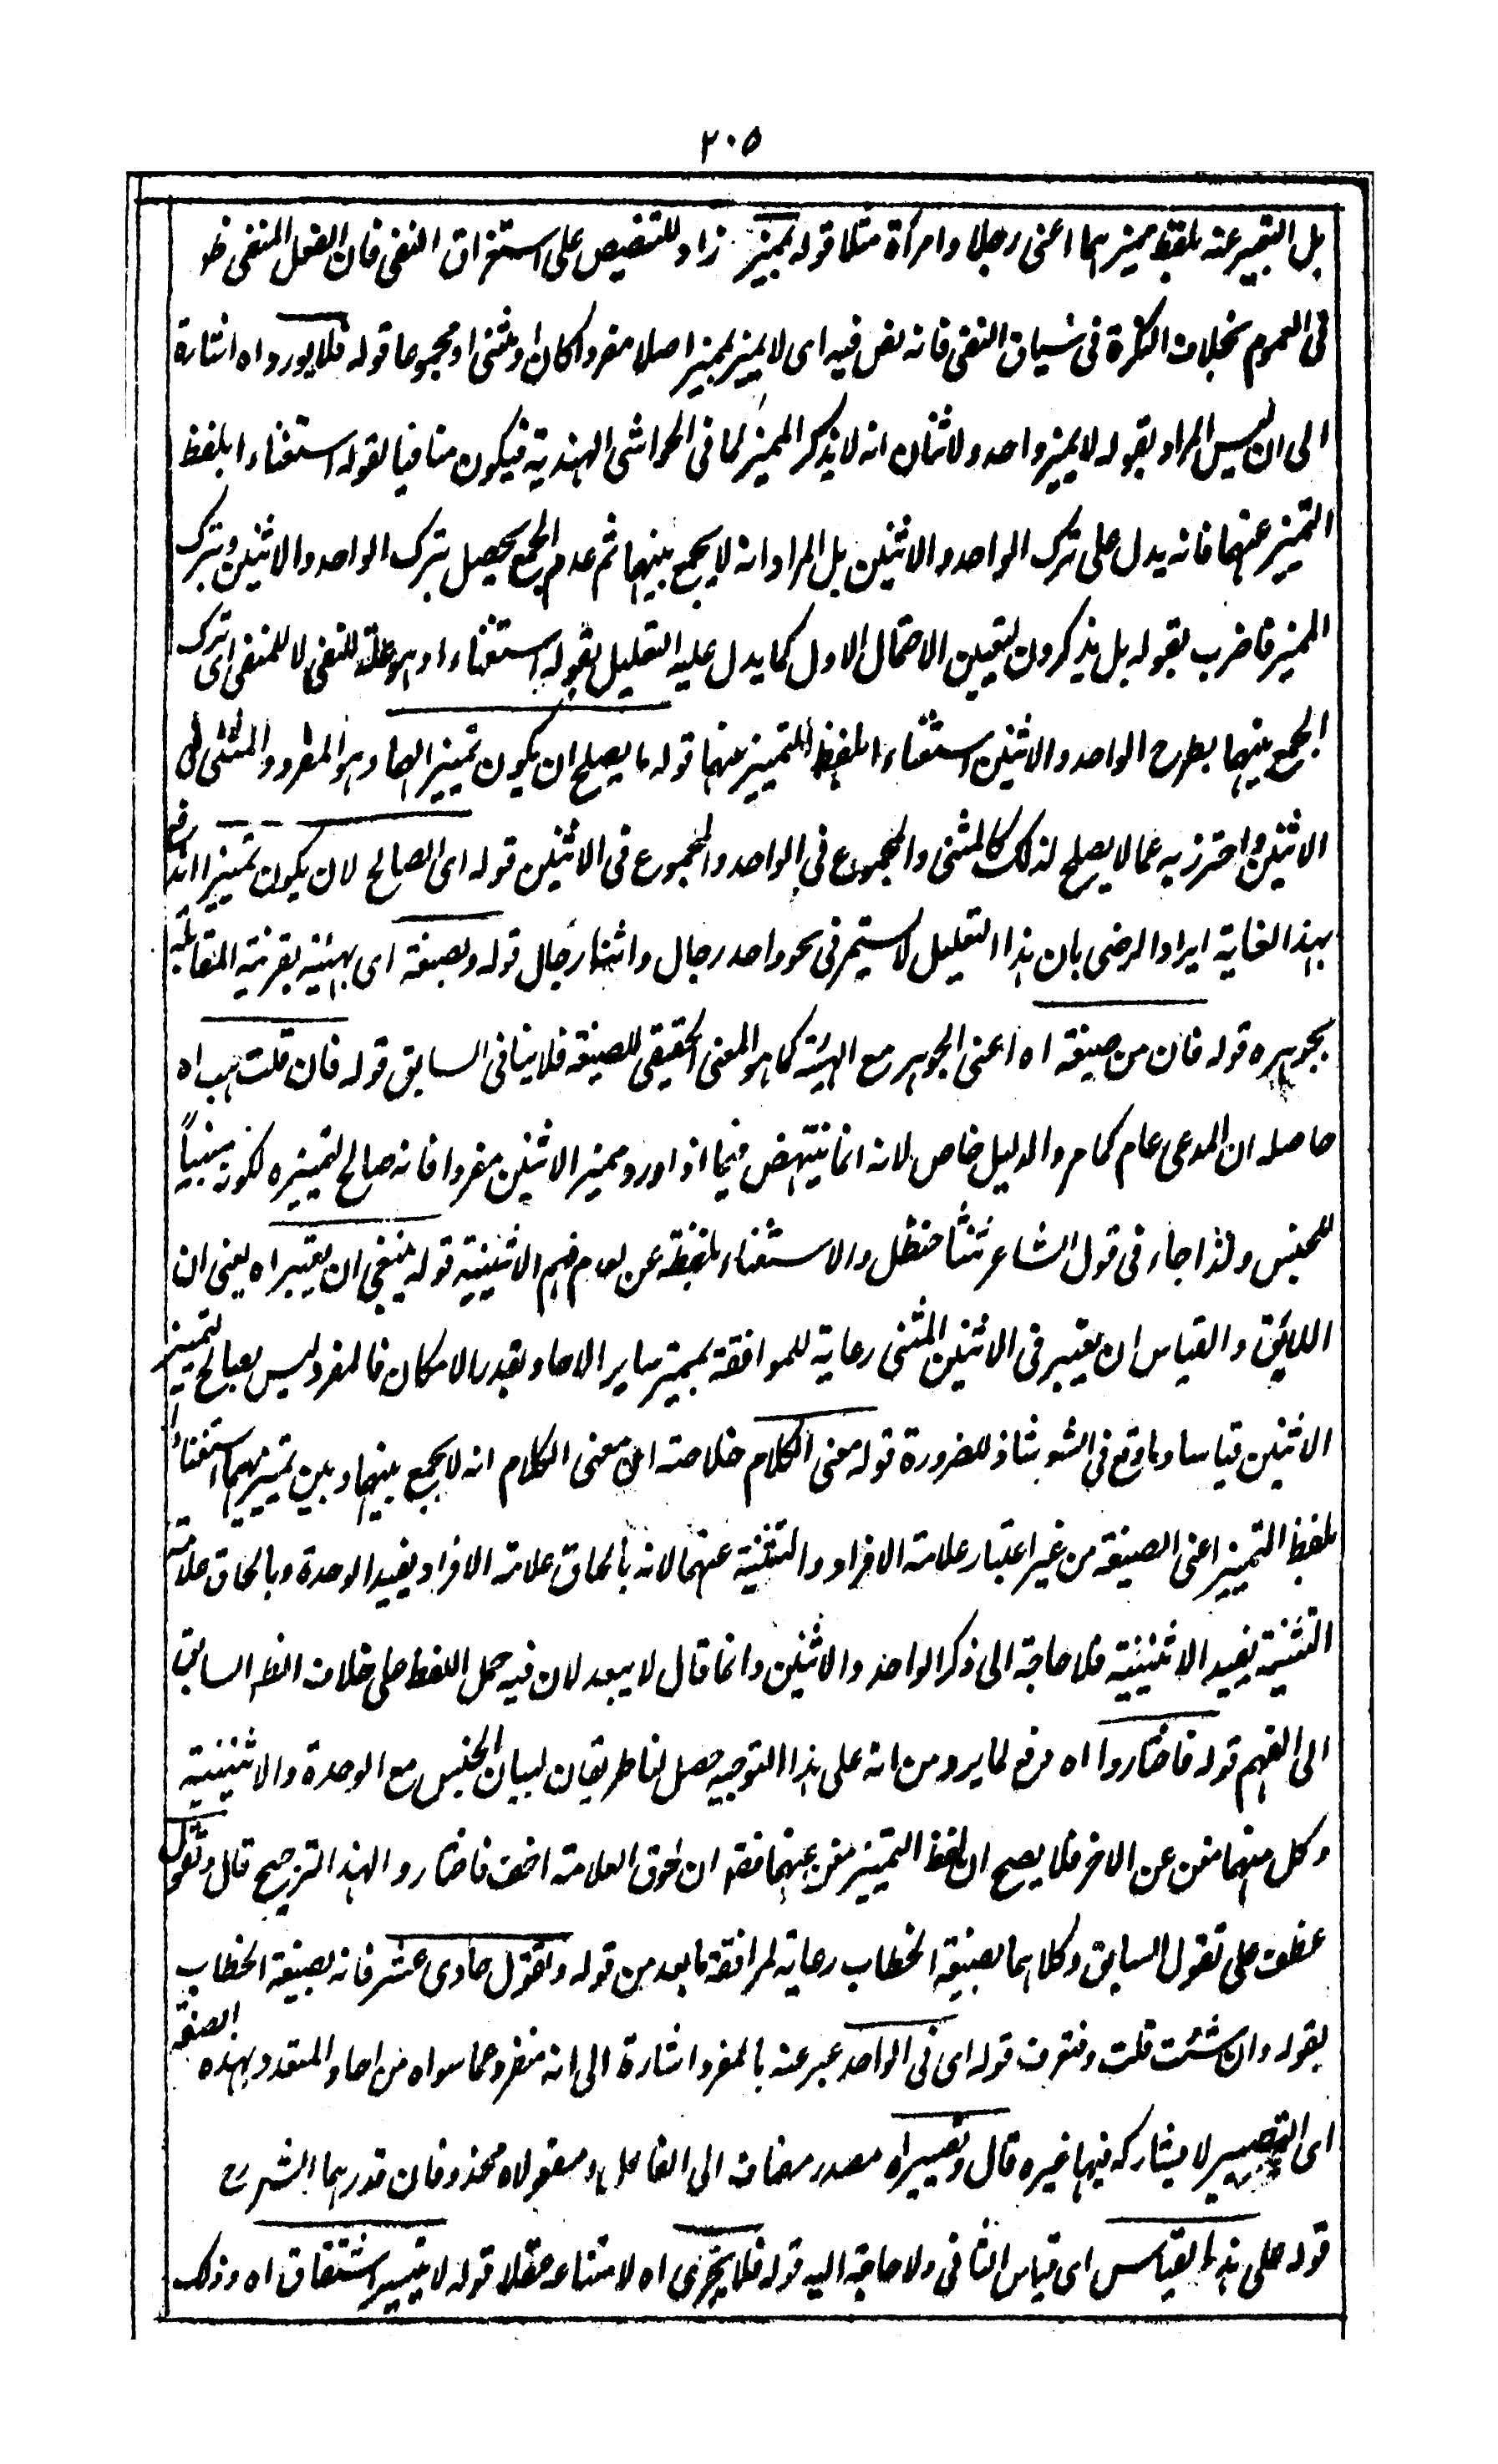 ٢٠٥
بل التعبير عنه بلفظ مميزهما اعنى رجلا وامرأة مثلا قوله بمميز زاد للتنصيص على استغراق النفى فان الفعل المنفى ظ
فى العموم بخلاف النكرة فى سياق النفى فانه نص فيه اى لا يميز بمميز اصلا مفردا كان او مثنى او مجموعا قوله فلا يورد اه اشارة
الى ان ليس المراد بقوله لا يميز واحد ولا ثنان انه لا يذكر المميز كما فى الحواشى الهندية فيكون منافيا لقوله استغناء بلفظ
التميز عنهما فانه يدل على ترك الواحد والاثنين بل المراد انه لا يجمع بينهما ثم عدم الجمع يحصل بترك الواحد والاثنين وبترك
المميز فاضرب بقوله بل يذكرون لتعيين الاحتمال الاول كما يدل عليه التعليل بقوله استغناء اذ هو علة للنفى لا للمنفى اى ترك
الجمع بينهما بطرح الواحد والاثنين استغناء بلفظ التمييز عنهما قوله ما يصلح ان يكون تمييزا لهما وهو المفرد والمثنى فى
الاثنين واحترز به عما لا يصلح لذلك كالمثنى والمجموع فى الواحد والمجموع فى الاثنين قوله اى الصالح لان يكون تمييزا اندفع
بهذا لعناية ايراد الرضى بان هذا التعليل لا يستمر فى نحو واحد رجال واثنا رجال قوله وبصيغته اى بهيئته بقرينة المقابلة
بجوهره قوله فان من صيغته اه اعنى الجوهر مع الهيئة كما هو المعنى الحقيقى للصيغة فلا ينافى السابق قوله فان قلت هب اه
حاصله ان المدعى عام كما مر والدليل خاص لانه انما ينتهض فيما اذا اورد مميز الاثنين مفردا فانه صالح لتمييزه لكونه مبنيا
للجنس ولذا جاء فى قول الشاعر ثنتا حنظل والاستغناء بلفظه عن لعدم فهم الاثنينية قوله ينبغى ان يعتبر اه يعنى ان
اللائق والقياس ان يعتبر فى الاثنين المثنى رعاية للموافقة بمميز ساير الاحاد بقدر الامكان فالمفرد ليس بصالح لتمييز
الاثنين قياسا وما وقع فى الشعر شاذ للضرورة قوله معنى الكلام خلاصته ان معنى الكلام انه لا يجمع بينهما وبين تمييزيهما استغناء
بلفظ التمييز اعنى الصيغة من غير اعتبار علامة الافراد والتثنية عنهما لانه بالحاق علامة الافراد يفيد الوحدة وبالحاق علامة
التثنية يفيد الاثنينية فلا حاجة الى ذكر الواحد والاثنين وانما قال لا يبعد لان فيه حمل اللفظ على خلاف الظ السابق
الى الفهم قوله فاختاروا اه دفع لما يرد من انه على هذا التوجيه حصل لنا طريقان لبيان الجنس مع الوحدة والاثنينية
وكل منهما مغن عن الاخر فلا يصح ان لفظ التمييز مغن عنهما فقط ان لحوق العلامة اخف فاختاروا لهذا الترجيح قال وتقول
عطف على تقول السابق وكلاهما بصيغة الخطاب رعاية لموافقة ما بعد من قوله وتقول حادى عشر فانه بصيغة الخطاب
بقوله وان شئت قلت وفتعرف قوله اى فى الواحد عبر عنه بالمفرد اشارة الى انه منفرد عما سواه من احاد المتعدد بهذه الصفة
اى التصيير لا يشاركه فيها غيره قال وتصييره مصدر مضاف الى الفاعل ومفعولاه محذوفان قدرهما الشرح
قوله على هذا القياس اى قياس الثانى ولا حاجة اليه قوله فلا يتجزى اه لامتناعه عقلا قوله لا يتيسر اشتقاق اه وذلك